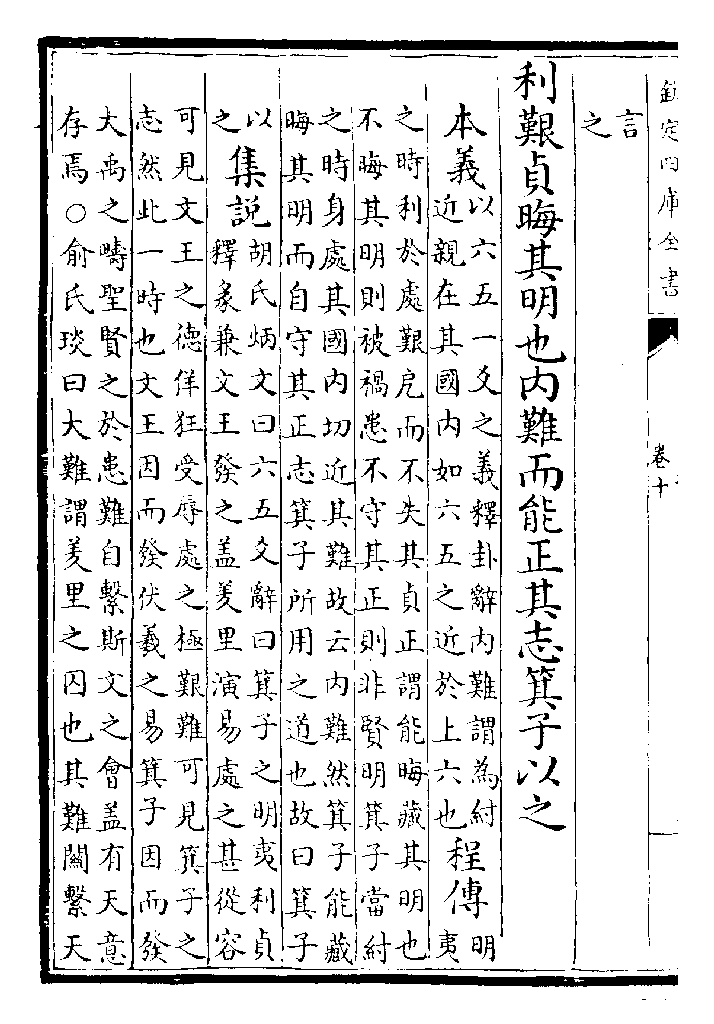 欽定四庫全書
卷十
言
之
利艱貞晦其明也内難而能正其志箕子以之
本義
以六五一爻之義釋卦辭内難謂為紂
近親在其國内如六五之近於上六也
程傳
明
夷
之時利於處艱戹而不失其貞正謂能晦藏其明也
不晦其明則被禍患不守其正則非賢明箕子當紂
之時身處其國内切近其難故云内難然箕子能藏
晦其明而自守其正志箕子所用之道也故曰箕子
以
之
集説
胡氏炳文曰六五爻辭曰箕子之明夷利貞
釋彖兼文王發之盖羑里演易處之甚從容
可見文王之德佯狂受辱處之極艱難可見箕子之
志然此一時也文王因而發伏羲之易箕子因而發
大禹之疇聖賢之於患難自繫斯文之會盖有天意
存焉○俞氏琰曰大難謂羑里之囚也其難關繫天